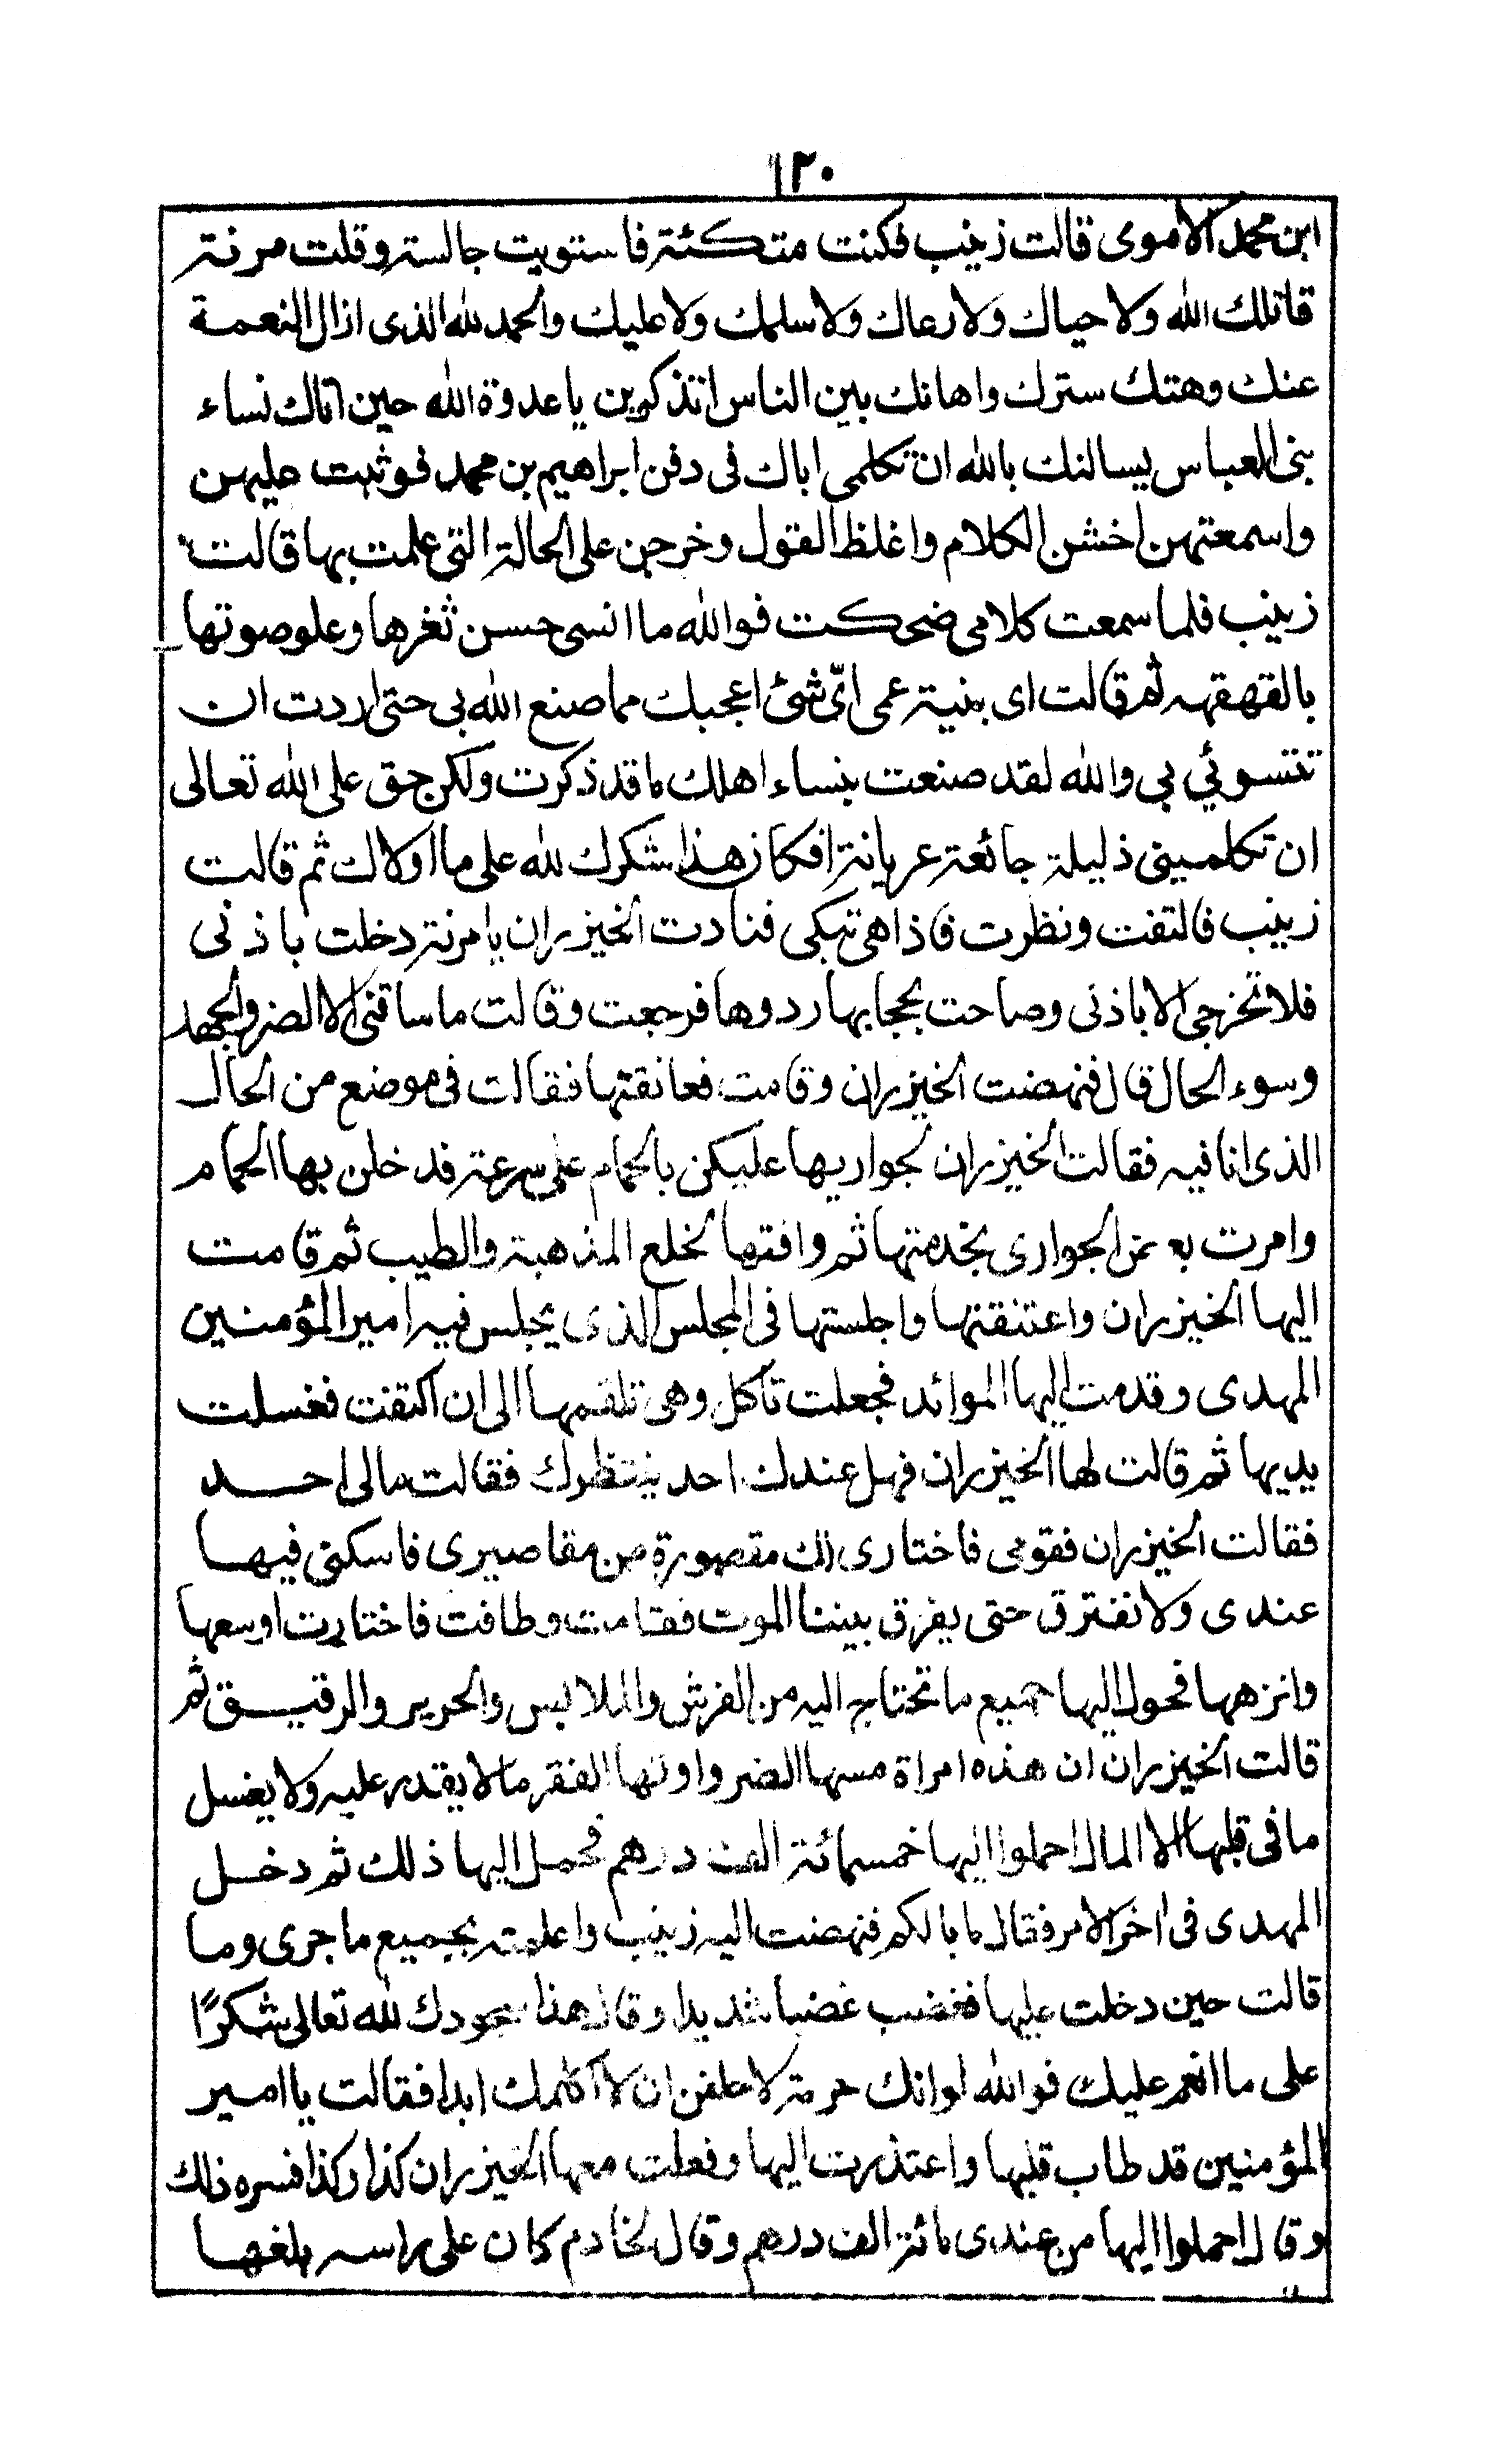 ١٢٠
ابن محمد الاموى قالت زينب فكنت متكئة فاستويت جالسة وقلت مرنة
قاتلك الله ولا حياك ولا رعاك ولا سلمك ولا عليك والحمد لله الذى ازال النعمة
عنك وهتك سترك واهانك بين الناس اتذكرين يا عدوة الله حين اتاك نساء
بنى العباس يسالنك بالله ان تكلمى اباك فى دفن ابراهيم بن محمد فوثبت عليهن
واسمعتهن اخشن الكلام واغلظ القول وخرجن على الحالة التى علمت بها قالت
زينب فلما سمعت كلامى ضحكت فوالله ما انسى حسن ثغرها وعلو صوتها
بالقهقهه ثم قالت اى بنية عمى اىّ شئ اعجبك مما صنع الله بى حتى اردت ان
تتسوئي بى والله لقد صنعت بنساء اهلك ما قد ذكرت ولكن حق على الله تعالى
ان تكلمينى ذليلة جائعة عريانة افكان هذا شكرك لله على ما اولاك ثم قالت
زينب فالتفت ونظرت فاذا هى تبكى فنادت الخيزران يا مرنة دخلت باذنى
فلا تخرجى الا باذنى وصاحت بحجابها ردوها فرجعت وقالت ما ساقنى الا الضر والجهد
وسوء الحال قال فنهضت الخيزران وقامت فعانقتها فقالت فى موضع من الحال
الذى انا فيه فقالت الخيزران لجواريها عليكن بالحمام على سرعة فدخلن بها الحمام
وامرت بعض الجوارى بخدمتها ثم وافتها لخلع المذهبة والطيب ثم قامت
اليها الخيزران واعتنقتها واجلستها فى المجلس الذى يجلس فيه امير المؤمنين
المهدى وقدمت اليها الموائد فجعلت تاكل وهى تلقمها الى ان اكتفت فغسلت
يديها ثم قالت لها الخيزران فهل عندك احد ينتظرك فقالت مالى احد
فقالت الخيزران فقومى فاختارى لك مقصورة من مقاصيرى فاسكنى فيها
عندى ولا نفترق حتى يفرق بيننا الموت فقامت وطافت فاختارت اوسعها
وانزهها فحول اليها جميع ما تحتاج اليه من الفرش والملابس والحرير والرقيق ثم
قالت الخيزران ان هذه امراة مسها الضر واوتها الفقر ما لا يقدر عليه ولا يغسل
ما فى قلبها الا المال احملوا اليها خمسمائة الف درهم فحمل اليها ذلك ثم دخل
المهدى فى اخر الامر فقال ما بالكم فنهضت اليه زينب واعلمته بجميع ما جرى وما
قالت حين دخلت عليها فغضب غضبا شديدا وقال هذا سجودك لله تعالى شكرًا
على ما انعم عليك فوالله لو انك حرمة لاحلفن ان لا اكلمك ابدا فقالت يا امير
المؤمنين قد طاب قلبها واعتذرت اليها وفعلت معها الخيزران كذا وكذا فسره ذلك
وقال احملوا اليها من عندى مائة الف درهم وقال لخادم كان على راسه بلغها